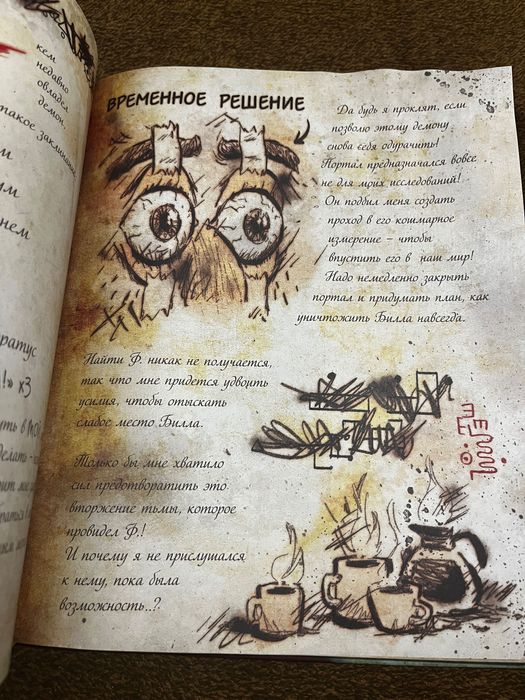 кем
недавно
овладел
демон.
такое
ВРЕМЕННОЕ РЕШЕНИЕ
Да будь я проклят, если
позволю этому демону
снова себя одурачить!
Портал предназначался вовсе
не для моих исследований!
Он подбил меня создать
проход в его кошмарное
измерение – чтобы
впустить его в наш мир!
Надо немедленно закрыть
портал и придумать план, как
уничтожить Билла навсегда.
Найти Ф. никак не получается,
так что мне придется удвоить
усилия, чтобы отыскать
слабое место Билла.
Только бы мне хватило
сил предотвратить это
вторжение тьмы, которое
провидел Ф.!
И почему я не прислушался
к нему, пока была
возможность..?